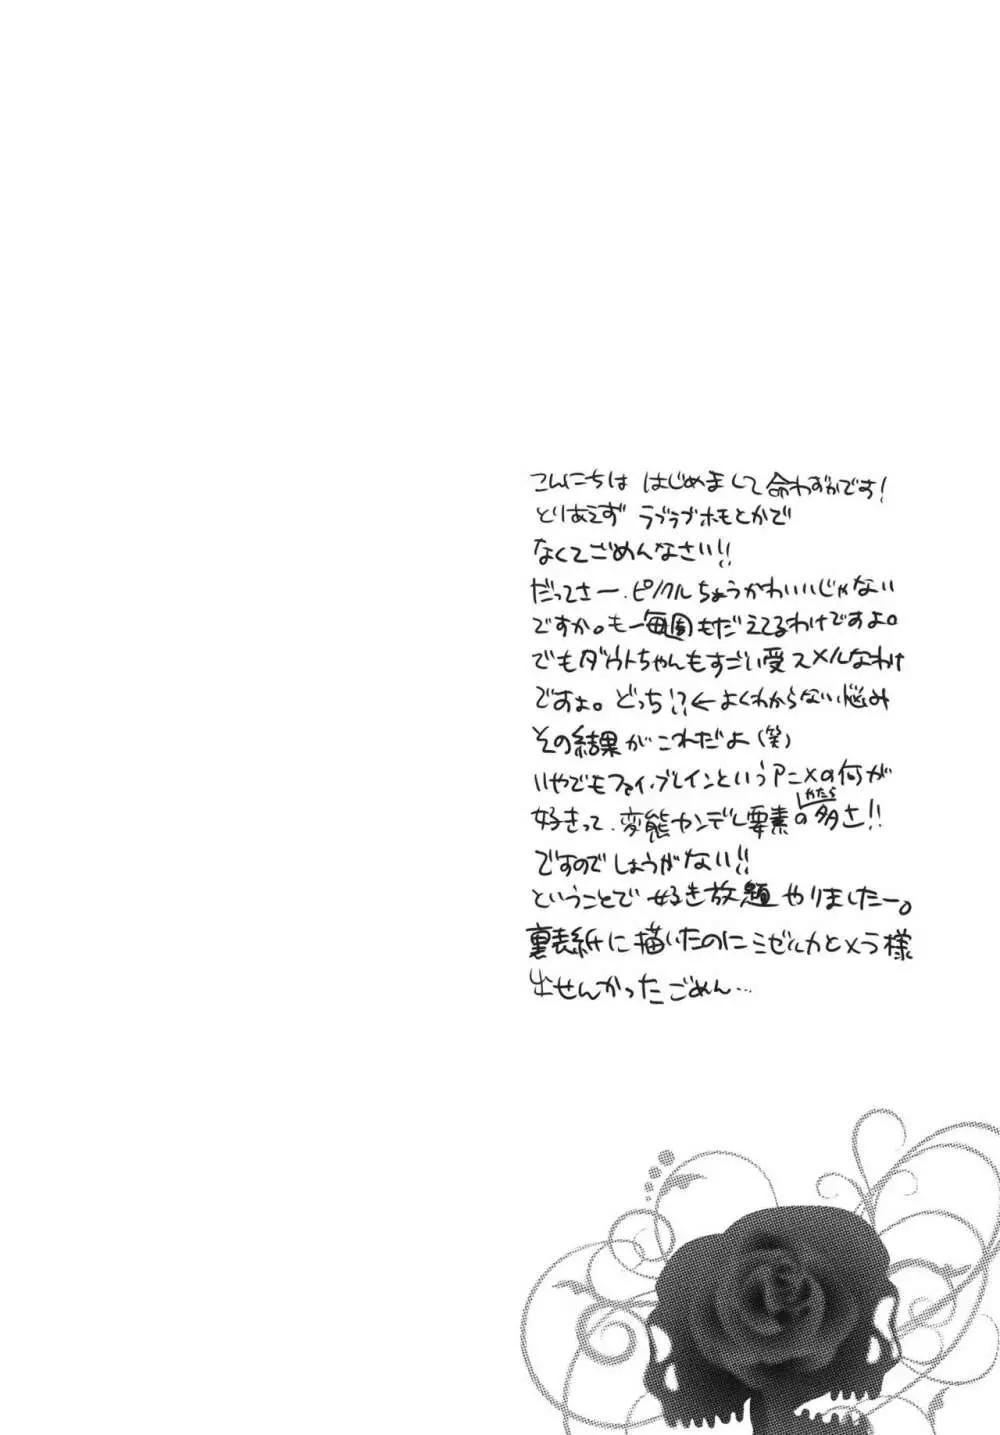 こんにちは はじめまして 命わずかです!
とりあえず ラブラブホモとかで
なくてごめんなさい!!
だってさー、ピノクルちょうかわいいじゃない
ですか。もー毎週もだえてるわけですよ。
でもダウトちゃんもすごい受スメルなわけ
ですよ。どっち!?←よくわからない悩み
その結果がこれだよ(笑)
いやでもファイ・ブレインというアニメの何が
好きって、変態ヤンデレ要素の多さ!!
かたら
ですのでしょうがない!!
ということで 好き放題 やりましたー。
裏表紙に描いたのにミゼルカとメラ様
出せんかったごめん…